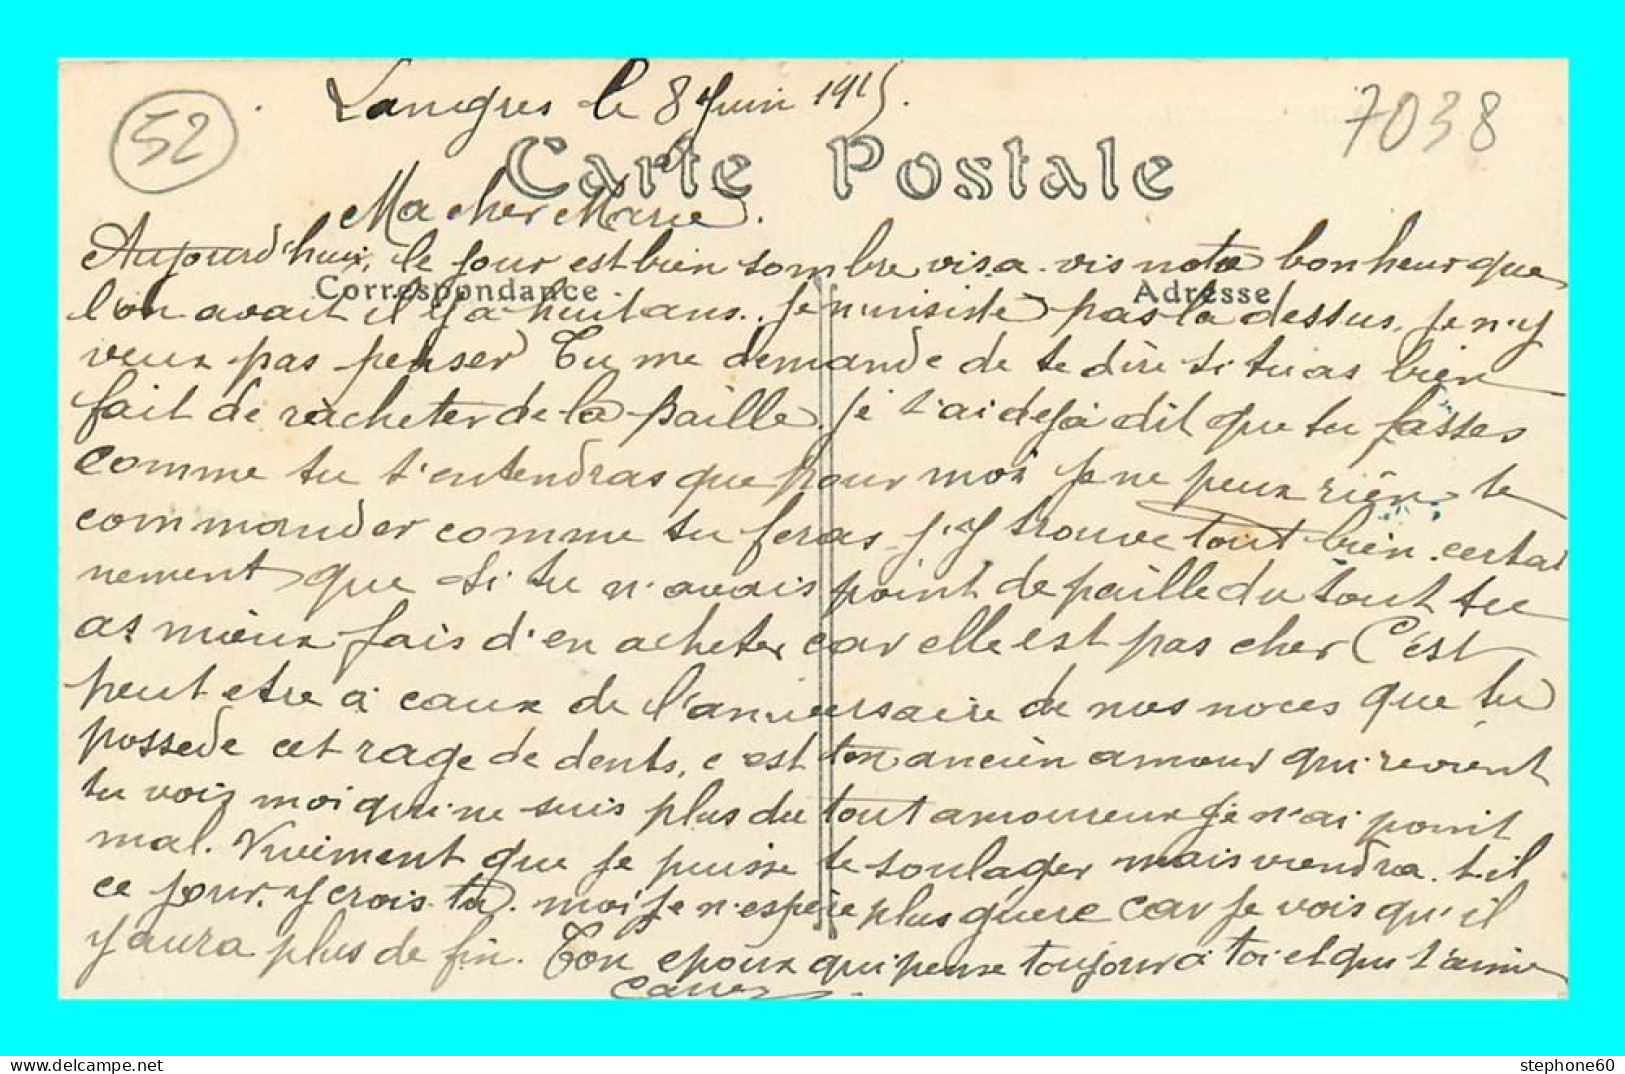 Langres le 8 Juin 1915.
52
7038
Carte Postale
Ma cher Marie.
Aujourd'hui, le jour est bien sombre vis a vis notre bonheur que
Correspondance
Adresse
l'on avait il y a huit ans. Je n'insiste pas la dessus, je n'y
veux pas penser Tu me demande de te dire si tu as bien
fait de racheter de la paille. je t'ai deja dit que tu fasses
comme tu t'entendras que pour moi je ne peux rien te
commander comme tu feras j'y trouve tout bien. certai
nement que si tu n'avais point de paille du tout tu
as mieux fais d'en acheter car elle est pas cher C'est
peut etre a caux de l'anniversaire de nos noces que tu
possede cet rage de dents, c'est ton ancien amour qui revient
tu vois moi qui ne suis plus du tout amoureux je n'ai point
mal. Vivement que je puisse te soulager mais viendra t-il
ce jour. y crois tu. moi je n'espère plus guere car je vois qu'il
y aura plus de fin. Ton epoux qui pense toujours a toi et qui t'aime
stephone60